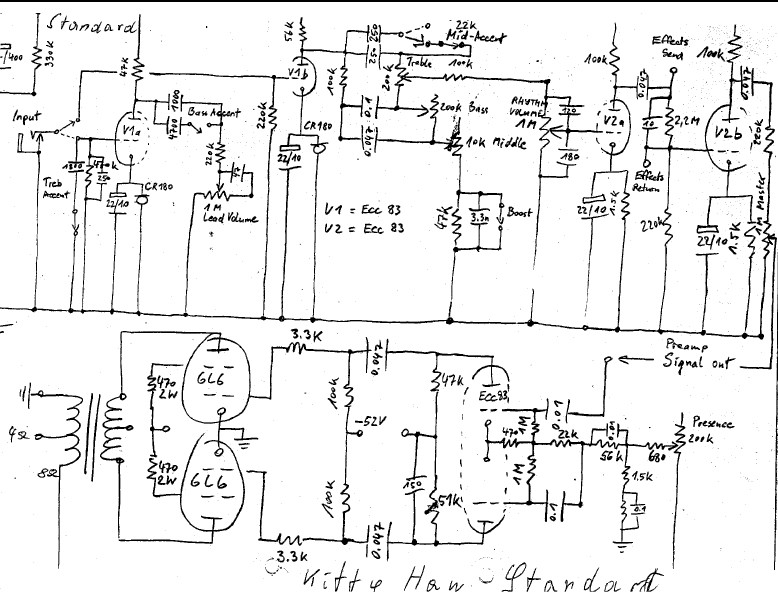 Standard
/400
330k
47k
56k
250
250
22k
Mid-Accent
Treble
100k
100k
200k
Effects Send
100k
0.047
100k
0.047
Input
V1a
1000
4700
Bass Accent
V1b
220k
CR180
22/10
0.1
0.047
200k Bass
10k Middle
RHYTHM VOLUME
1M
120
180
V2a
10
2,2M
V2b
220k
1800
250
Treb Accent
220k
CR180
22/10
1M
Lead Volume
V1 = Ecc 83
V2 = Ecc 83
47k
3.3n
Boost
22/10
1.5k
Effects Return
220k
22/10
1.5k
1M Master
Preamp
Signal out
3.3K
0.047
470
2W
6L6
100k
47k
Ecc83
0.01
-52V
1M
470
22k
56k
680
Presence
200k
4Ω
8Ω
470
2W
6L6
100k
150
51k
1M
0.1
1.5k
0.1
3.3K
0.047
Kitty Haw Standart